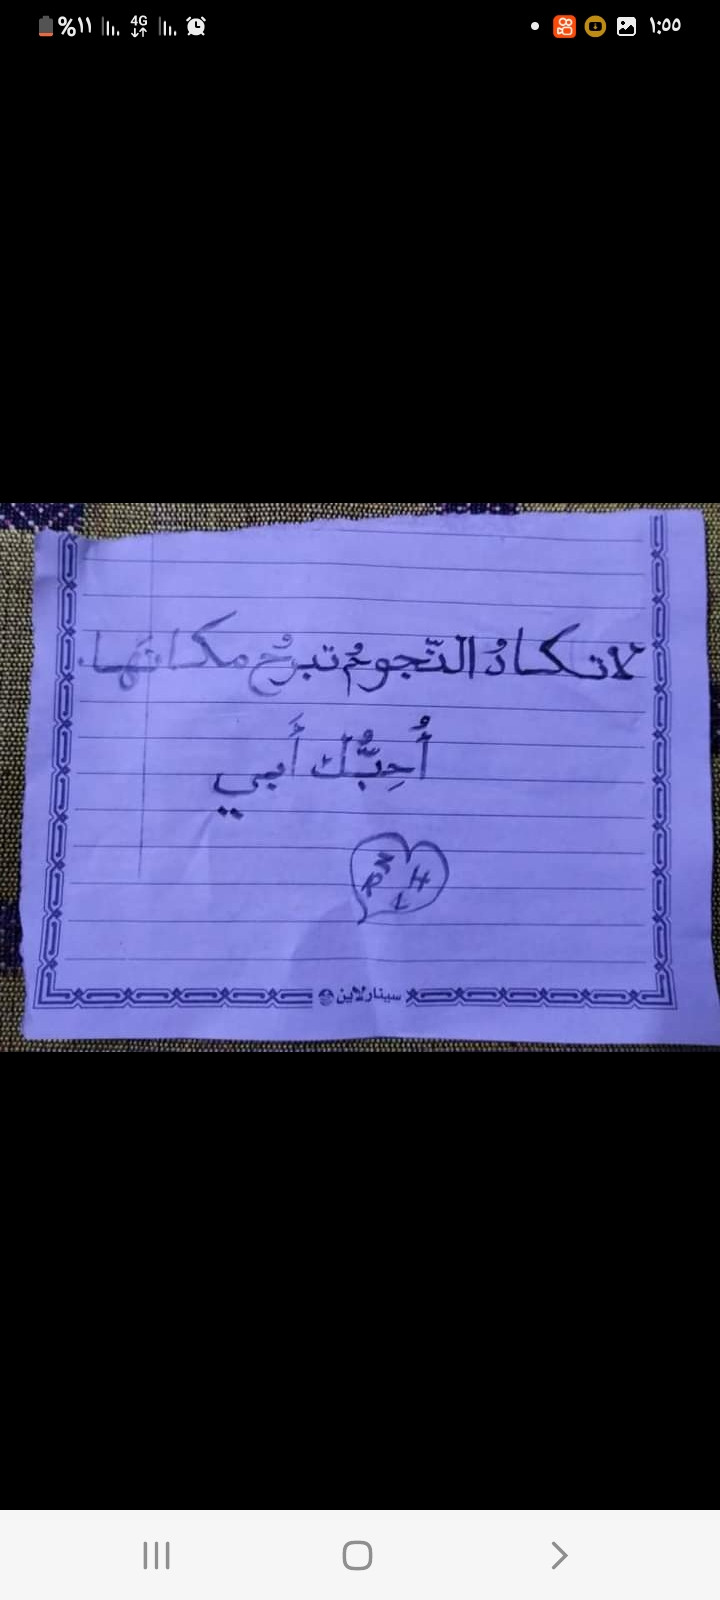 %١١ 4G ١:٥٥
لا تكادُ النّجومُ تبرحُ مكانَها.
أُحِبُّك أَبي
R M H L
سينارلاين